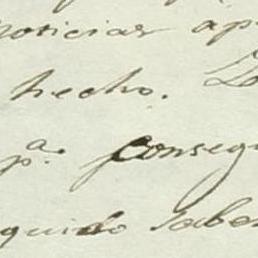 noticias ap
hecho. Lo
p.ª consegu
guido saber